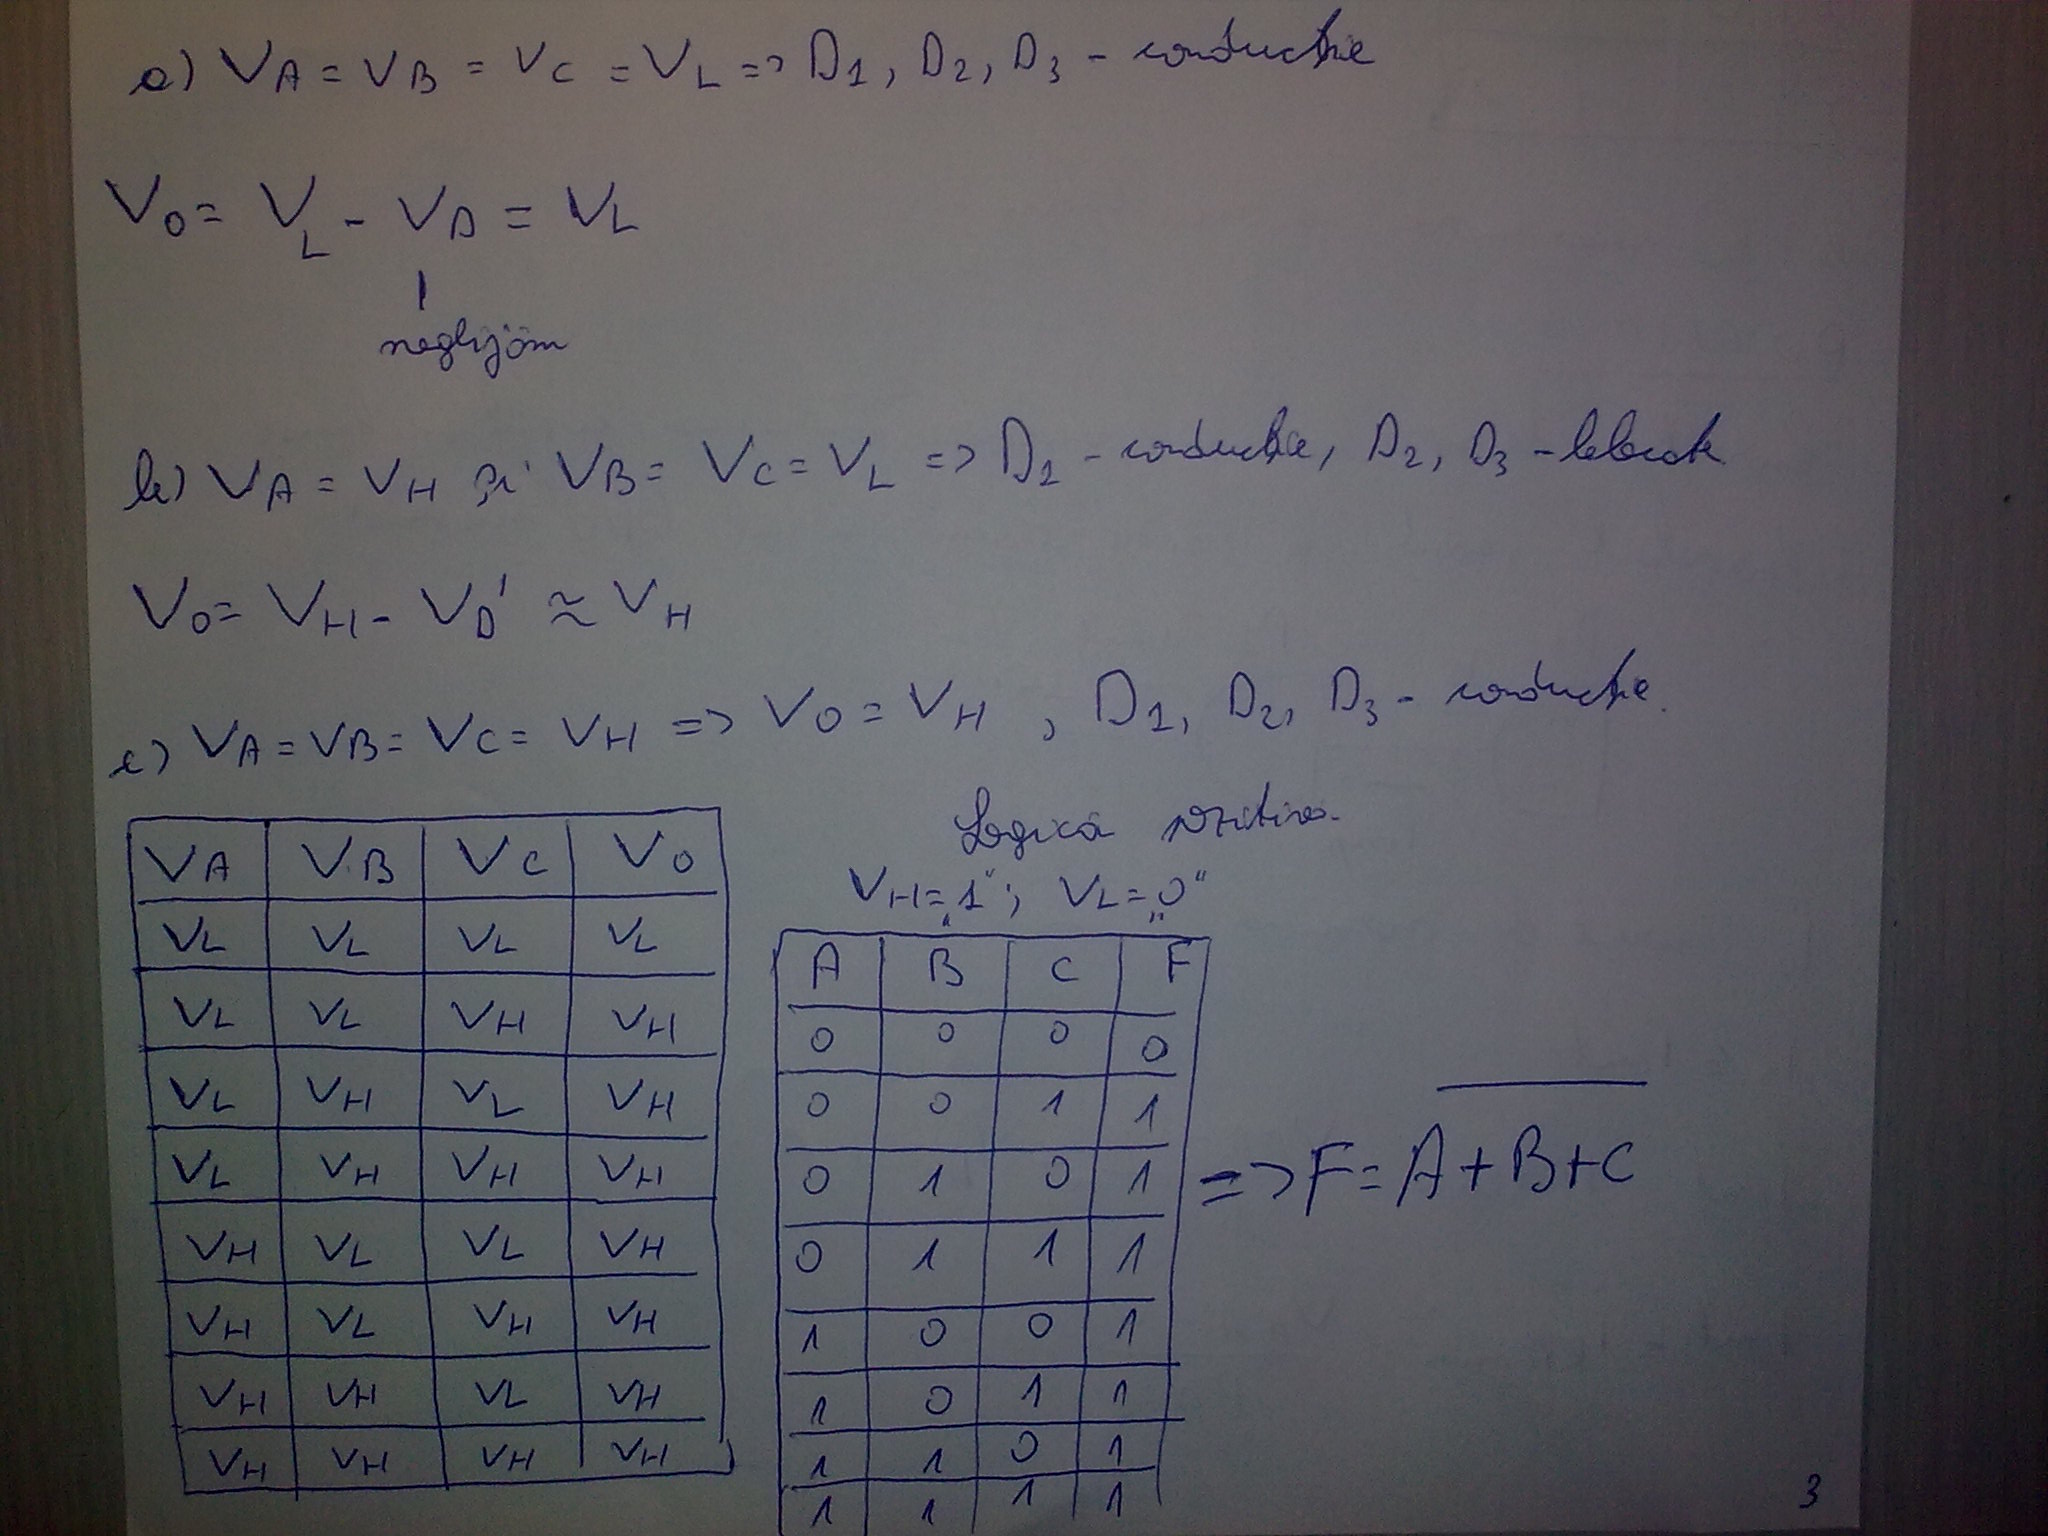 a) VA = VB = VC = VL => D1, D2, D3 - conductie
VO = VL - VD = VL
neglijăm
b) VA = VH și VB = VC = VL => D1 - conductie, D2, D3 - blocate
VO = VH - VD' ≈ VH
c) VA = VB = VC = VH => VO = VH , D1, D2, D3 - conductie.
VA VB VC VO
VL VL VL VL
VL VL VH VH
VL VH VL VH
VL VH VH VH
VH VL VL VH
VH VL VH VH
VH VH VL VH
VH VH VH VH
Logică pozitivă.
VH = „1" ; VL = „0"
A B C F
0 0 0 0
0 0 1 1
0 1 0 1
0 1 1 1
1 0 0 1
1 0 1 1
1 1 0 1
1 1 1 1
=> F = A + B + C
3